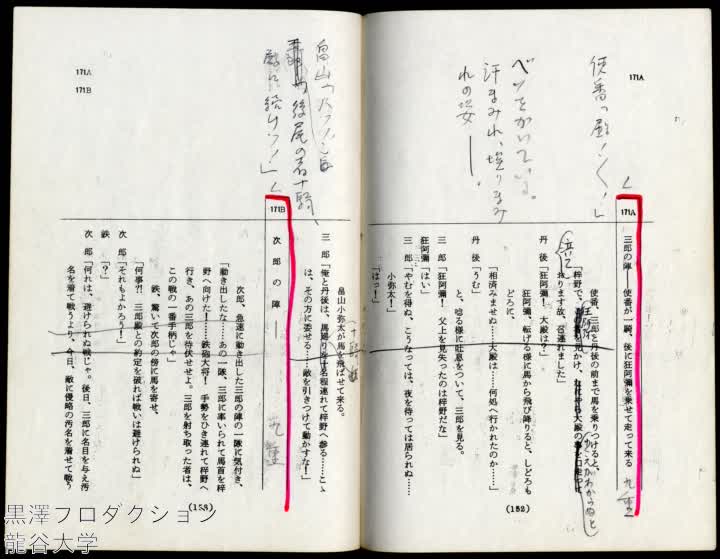 171A
使番「殿！く、！」
ベソをかいている。
汗まみれ、埃まみ
れの
171A
三郎の陣――使番が一騎、後に狂阿彌を乗せて走って来る
使番、三郎と丹後の前まで馬を乗りつけると、
「梓野で、
見かけ、
大殿の
参ります故、召連れました」
丹後「狂阿彌！大殿は？」
狂阿彌、転げる様に馬から飛び降りると、しどろも
どろに、
「相済みませぬ……大殿は……何処へ行かれたのか……」
丹後「うむ」
と、唸る様に吐息をついて、三郎を見る。
三郎「狂阿彌！　父上を見失ったのは梓野だな」
狂阿彌「はい」
三郎「やむを得ぬ、こうなっては、夜を待っては居られぬ……
小弥太！」
「はっ！」
(152)
171A
171B
畠山
後尾の若十騎、
殿に続けッ！」
畠山小弥太が馬を飛ばせて来る。
三郎「俺と丹後は、
程連れて梓野へ参る……こゝ
は、その方に委せる……敵を引きつけて動かすな！」
171B
次郎の陣――
次郎、急速に動き出した三郎の陣の一隊に気付き、
「動き出したな……あの一隊、三郎に率いられて馬首を梓
野へ向けた！……鉄砲大将！　手勢をひき連れて梓野へ
行き、あの三郎を待伏せせよ。三郎を射ち取った者は、
この戦の一番手柄じゃ」
鉄、驚いて次郎の傍に馬を寄せ、
「何事?!　三郎殿との約定を破れば戦いは避けられぬ」
次郎「それもよかろう！」
鉄「？」
次郎「何れは、避けられぬ戦じゃ。後日、三郎に名目を与え汚
名を着て戦うより、今日、敵に侵略の汚名を着せて戦う
(153)
黒澤プロダクション
龍谷大学